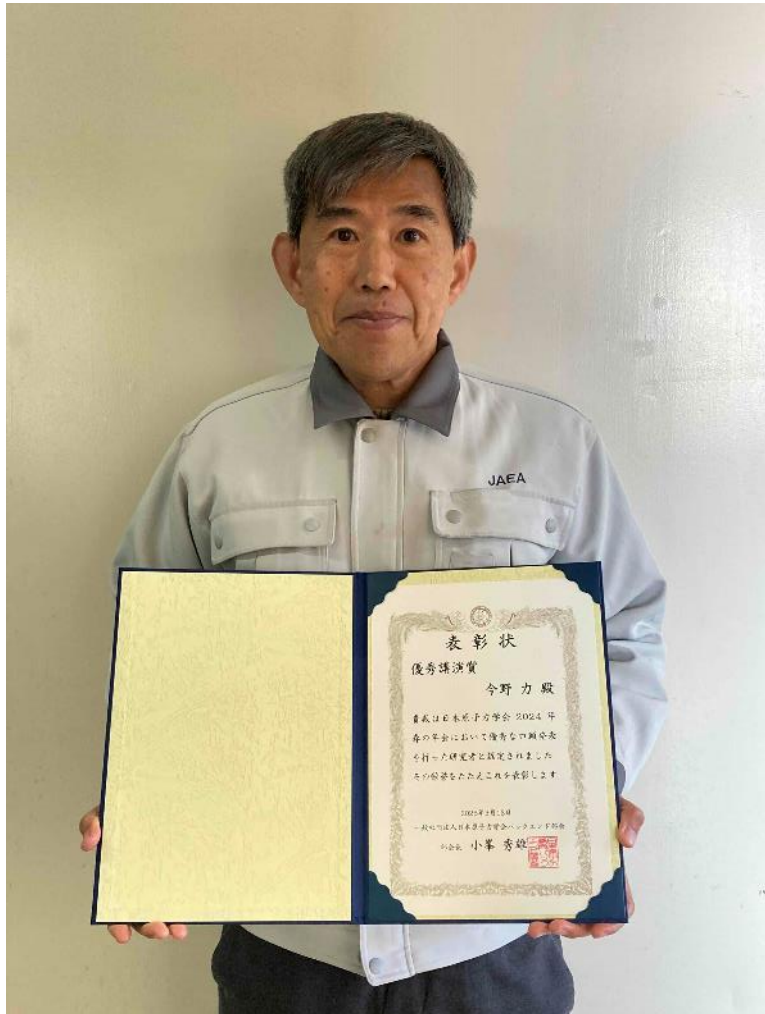 JAEA
表彰状
優秀講演賞
今野 力 殿
貴殿は日本原子力学会 2024 年
春の年会において優秀な口頭発表
を行った研究者と認定されました
その栄誉をたたえこれを表彰します
一般社団法人日本原子力学会バックエンド部会
部会長 小峯 秀雄